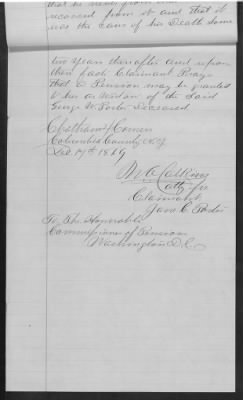 that he never
recovered from it and that it
was the Cause of his Death some
two years thereafter and upon
these facts Claimant Prays
that a Pension may be granted
to her as Widow of the said
George W. Porter Deceased
Chatham 4 Corners
Columbia County N.Y.
Dec 19th 1869
Atty for
Claimant
Jane C. Porter
To The Honorable
Commissioner of Pensions
Washington D.C.